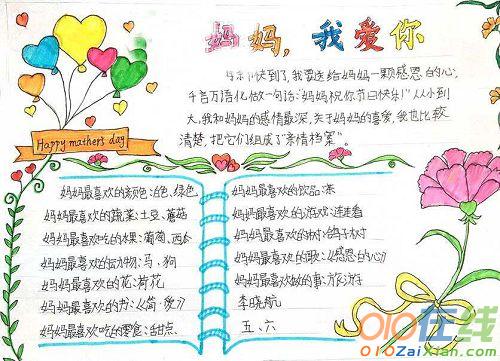 妈妈，我爱你
母亲节快到了,我要送给妈妈一颗感恩的心,
千言万语化做一句话:"妈妈祝你节日快乐!"从小到
大,我和妈妈的感情最深,关于妈妈的喜爱,我也比较
清楚,把它们组成了"亲情档案"。
Happy mather's day
妈妈最喜欢的颜色:白色、绿色
妈妈最喜欢的蔬菜:土豆、蘑菇
妈妈最喜欢吃的水果:葡萄、西瓜
妈妈最喜欢的动物:马、狗
妈妈最喜欢的花:荷花
妈妈最喜欢的书:《简·爱》
妈妈最喜欢吃的零食:甜点
妈妈最喜欢的饮品:茶
妈妈最喜欢的游戏:连连看
妈妈最喜欢的树:鸽子树
妈妈最喜欢的歌:《感恩的心》
妈妈最喜欢做的事:旅游
李晓航
五、六
010在线
010ZaiXian.com